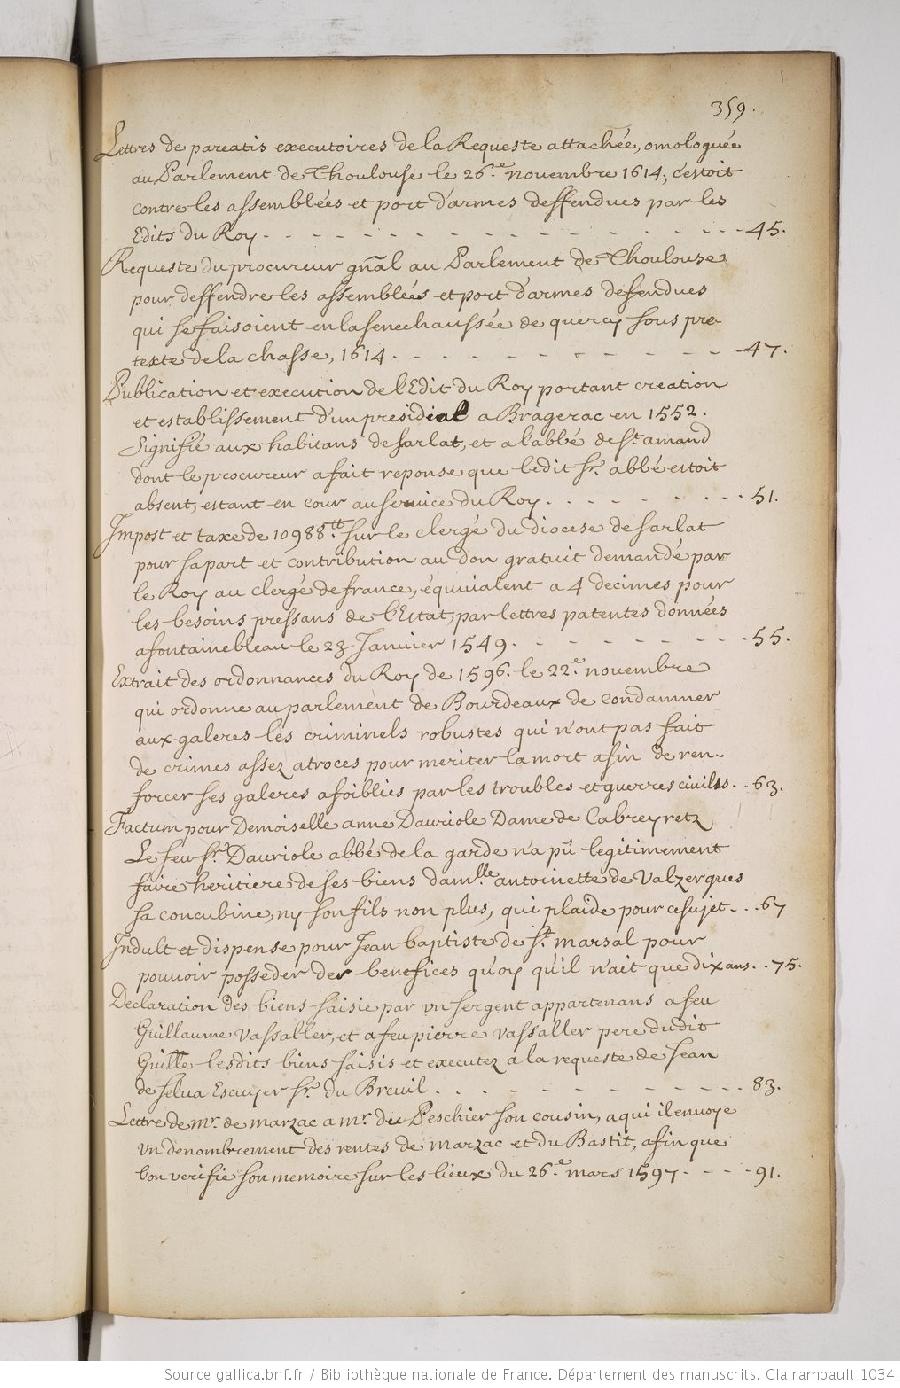 359.
Lettres de pareatis executoires de la Requeste attachée, omologuée
au Parlement de Thoulouse le 26.e novembre 1614, c'estoit
contre les assemblées et port d'armes deffendues par les
Edits du Roy - - - - - - - - - - - - - - - 45.
Requeste du procureur gñal au Parlement de Thoulouze
pour deffendre les assemblées et port d'armes defendues
qui se faisoient en la senechaussée de quercy sous pre
texte de la chasse, 1614 - - - - - - - - - - - 47.
Publication et execution de l'Edit du Roy portant creation
et establissement d'un presidial a Bragerac en 1552.
Signifié aux habitans de sarlat, et a l'abbé de St. amand
dont le procureur a fait reponse que ledit sr. abbé estoit
absent, estant en cour au service du Roy - - - - - - - 51.
Impost et taxe de 10988tt sur le clergé du diocese de sarlat
pour sa part et contribution au don gratuit demandé par
le Roy au clergé de france, équivalent a 4 decimes pour
les besoins pressans de l'Estat, par lettres patentes données
a fontainebleau le 23 Janvier 1549. - - - - - - - - 55.
Extrait des ordonnances du Roy de 1596. le 22.e novembre
qui ordonne au parlement de Bourdeaux de condamner
aux galeres les criminels robustes qui n'ont pas fait
de crimes assez atroces pour meriter la mort afin de ren-
forcer ses galeres afoiblies par les troubles et guerres civiles. - 63.
Factum pour Demoiselle anne Dauriole Dame de Cabreyretz
Le feu sr. Dauriole abbé de la garde n'a pû legitimement
faire heritiere de ses biens dam.lle antoinette de Valzergues
sa concubine, ny son fils non plus, qui plaide pour ce sujet - - 67
Indult et dispense pour Jean baptiste de St. marsal pour
pouvoir posseder des benefices quoy qu'il n'ait que dix ans. - 75.
Declaration des biens saisis par un sergent appartenans a feu
Guillaume Vassaller, et a feu pierre Vassaller pere dudit
Guille. lesdits biens saisis et executez a la requeste de Jean
de selva Escuyer sr. du Breuil - - - - - - - - - - 83.
Lettre de mr. de marzac a mr. du Peschier son cousin, a qui il envoye
un denombrement des rentes de marzac et du Bastit, afin que
l'on verifie son memoire sur les lieux du 26.e mars 1597 - - - - 91.
Source gallica.bnf.fr / Bibliothèque nationale de France. Département des manuscrits. Clairambault 1034